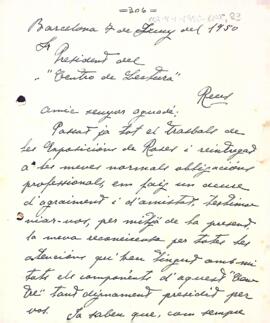 =306=
Barcelona 7 de Juny del 1950
Sr
President del
"Centro de Lectura"
Reus
Amic senyor aguadé:
Passat ja tot el trasbals de
les Exposicións de Roses i reintegrat
a les meves normals obligacións
professionals, em faig un deure
d'agraiment i d'amistat, testimo
niar-vos, per mitjà de la present,
la meva reconeixença per totes les
atencións que heu tingut amb mi
tots els components d'aquest "Cen-
tre" tant dignament presidid per
vos. Ja saben que, com sempre